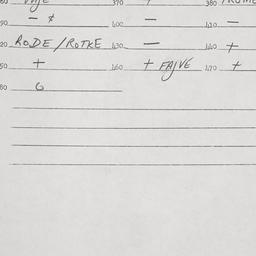 370 380
90 — 400 — 410 —
20 RODE/ROTKE 430 — 440 +
50 + 460 + FAIVE 470 +
80 G